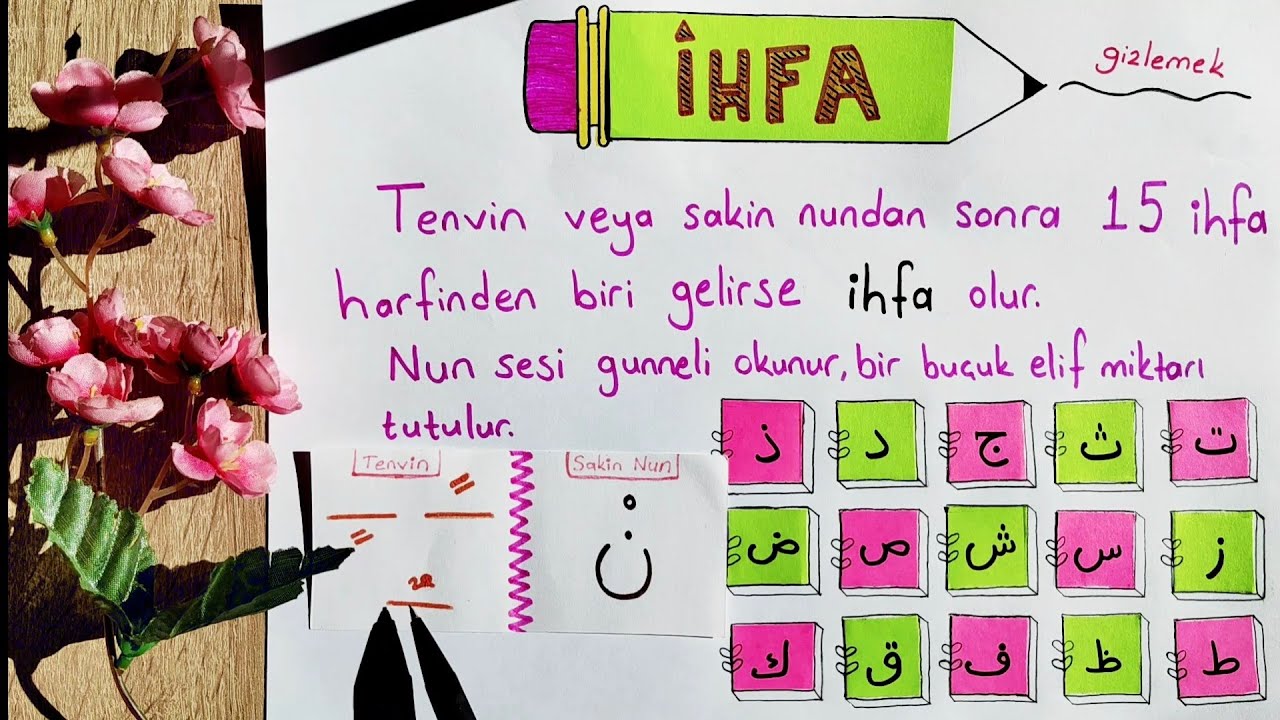 İHFA
gizlemek
Tenvin veya sakin nundan sonra 15 ihfa
harfinden biri gelirse ihfa olur.
Nun sesi gunneli okunur, bir buçuk elif miktarı
tutulur.
Tenvin
Sakin Nun
نْ
ت ث ج د ذ
ز س ش ص ض
ط ظ ف ق ك